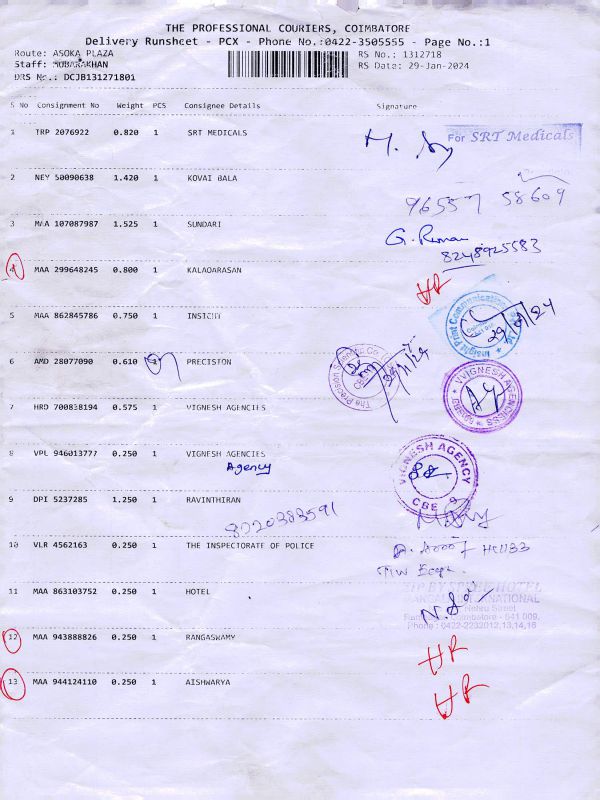 THE PROFESSIONAL COURIERS, COIMBATORE
Delivery Runsheet - PCX - Phone No.:0422-3505555 - Page No.:1
Route: ASOKA PLAZA RS No.: 1312718
Staff: MUBARAKHAN RS Date: 29-Jan-2024
DRS No.: DCJB131271801
S No Consignment No Weight PCS Consignee Details Signature
1 TRP 2076922 0.820 1 SRT MEDICALS
For SRT Medicals
2 NEY 50090638 1.420 1 KOVAI BALA
96557 58609
3 MAA 107087987 1.525 1 SUNDARI
8248925583
4 MAA 299648245 0.800 1 KALAOARASAN
HR
5 MAA 862845786 0.750 1 INSICHY
29/1/24
6 AMD 28077090 0.610 1 PRECISION
29/1/24
7 HRD 700838194 0.575 1 VIGNESH AGENCIES
VIGNESH AGENCIESS
8 VPL 946013777 0.250 1 VIGNESH AGENCIES
Agency
VIGNESH AGENCY
CBE - 9
9 DPI 5237285 1.250 1 RAVINTHIRAN
8020383591
10 VLR 4562163 0.250 1 THE INSPECTORATE OF POLICE
11 MAA 863103752 0.250 1 HOTEL
Nehru Street
Coimbatore - 641 009.
Phone : 0422-2232012,13,14,16
12 MAA 943888826 0.250 1 RANGASWAMY
HR
13 MAA 944124110 0.250 1 AISHWARYA
HR